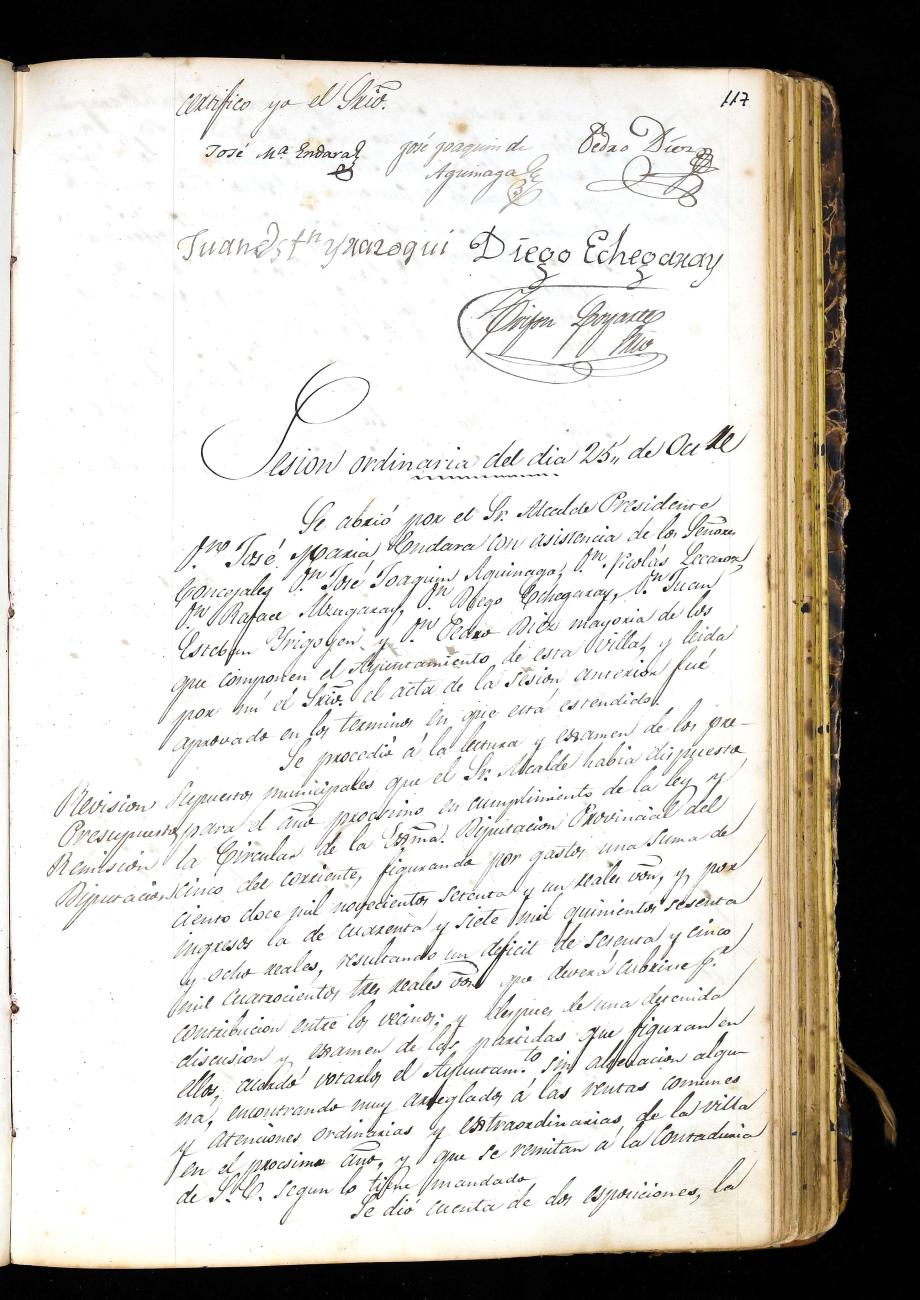 117
certifico yo el Srio.
José Ma. Endara José Joaquin de Pedro Diez
Aguinaga
Juan Estn Yrazoqui Diego Echegaray
Srio
Sesion ordinaria del dia 25,, de Octbre
Se abrió por el Sr. Alcalde Presidente
Dn. José Maria Endara con asistencia de los Señores
Concejales Dn José Joaquin Aguinaga, Dn. Nicolás Lecaroz,
Dn Rafael Alzugaray, Dn Diego Echegaray, Dn Juan
Esteban Yrigoyen y Dn Pedro Diez mayoria de los
que componen el Ayuntamiento de esta Villa, y leida
por mi el Srio. el acta de la sesion anterior fué
aprovado en los terminos en que está estendido.
Se procedió á la lectura y examen de los pre-
Revision supuestos municipales que el Sr. Alcalde habia dispuesto
Presupuestos para el año procsimo en cumplimiento de la ley y
Remisión la Circular de la Exma. Diputacion Provincial del
Diputacion cinco del corriente, figurando por gastos una suma de
ciento doce mil novecientos setenta y un reales von, y por
ingresos la de cuarenta y siete mil quinientos sesenta
y ocho reales, resultando un déficit de sesenta y cinco
mil cuatrocientos tres reales von que deverá cubrirse pr
contribucion entre los vecinos; y despues de una detenida
discusion y examen de las partidas que figuran en
ellos, acordó votarlos el Ayuntamto. sin alteracion algu-
na, encontrando muy arreglados á las rentas comunes
y atenciones ordinarias y extraordinarias de la villa
en el procsimo año, y que se remitan á la Contaduria
de S. E. segun lo tiene mandado
Se dió cuenta de dos esposiciones, la